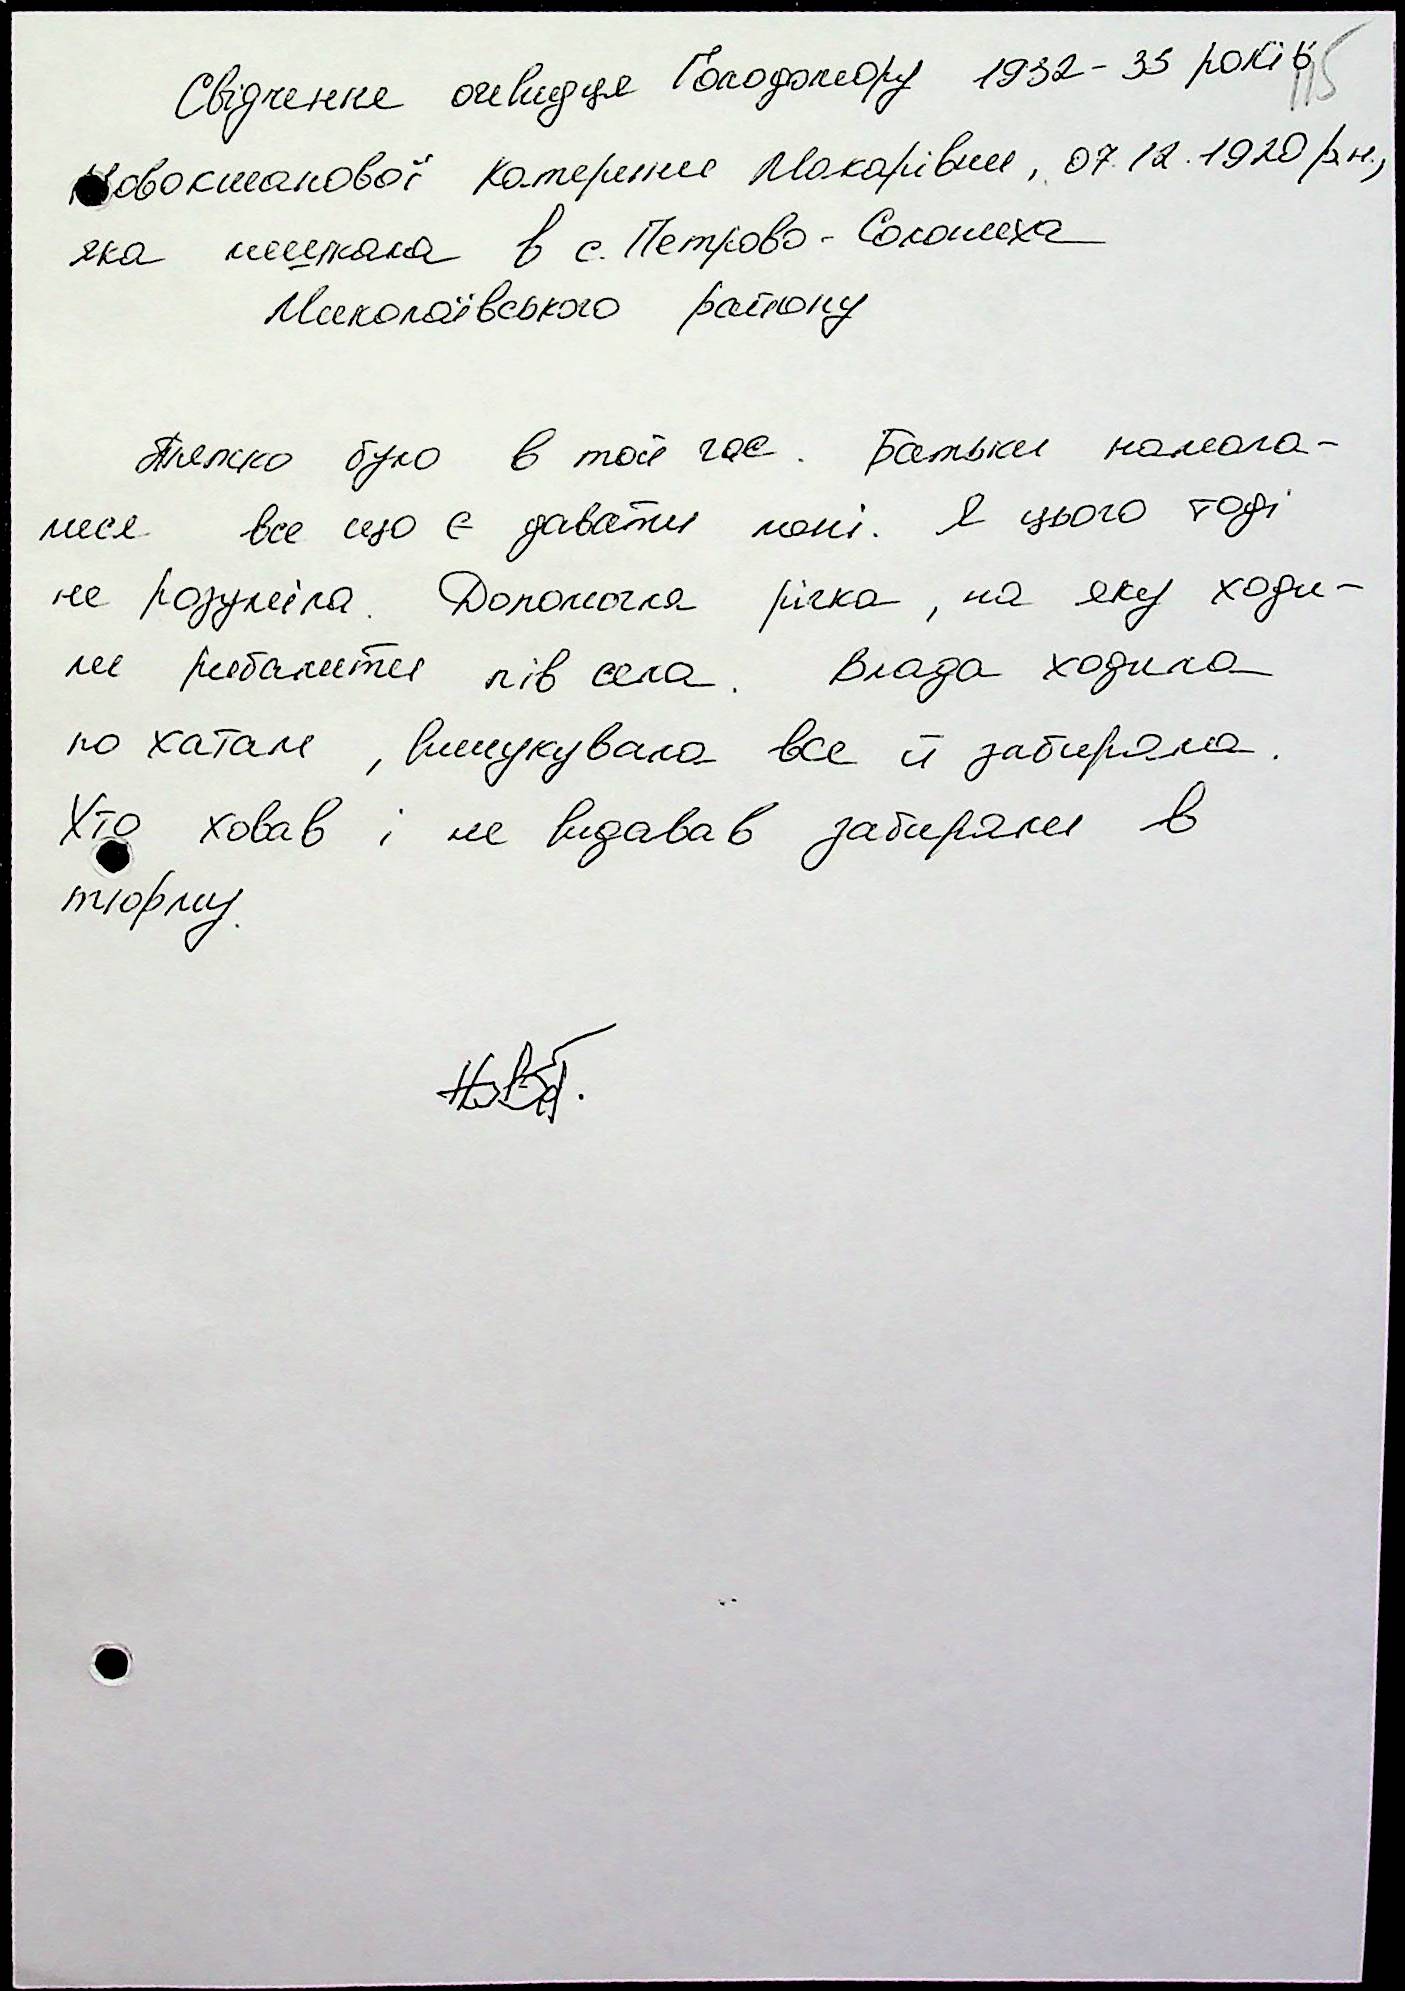 Свідчення очевидця Голодомору 1932-33 років
115
Новокшанової Катерини Макарівни, 07.12.1920 р.н.,
яка мешкала в с. Петрово-Солониха
Миколаївського району
Тяжко було в той час. Батьки намога-
лися все що є давати мені. Я цього тоді
не розуміла. Допомогла річка, на яку ходи-
ли рибалити пів села. Влада ходила
по хатам, вишукувала все й забирала.
Хто ховав і не видавав забирали в
тюрму.